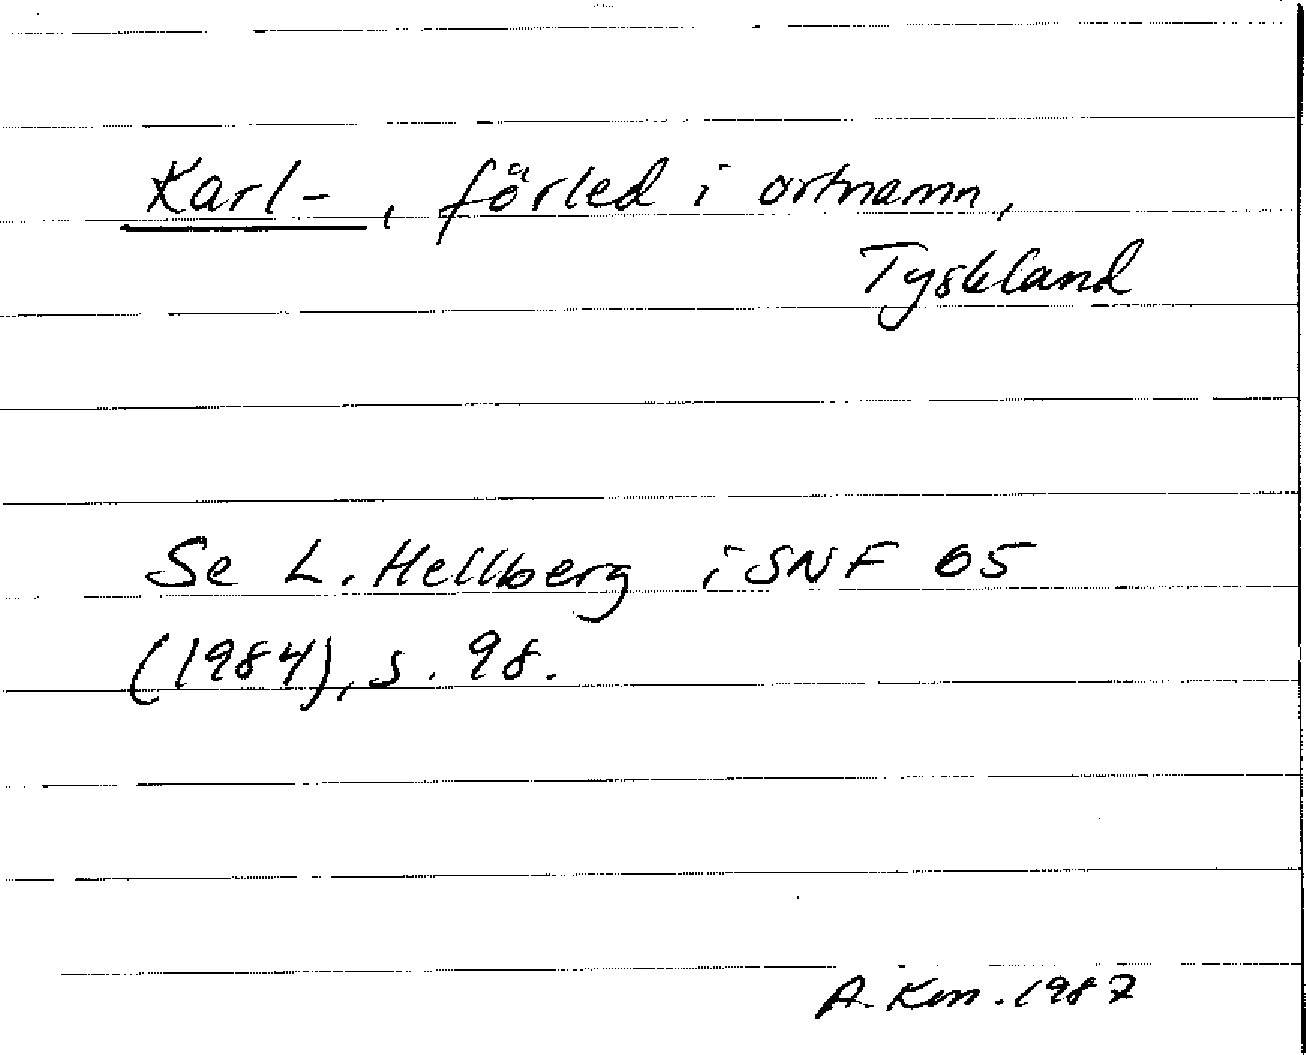 Karl-, förled i ortnamn,
Tyskland
Se L. Hellberg i SNF 65
(1984), s. 98.
A. Km. 1987